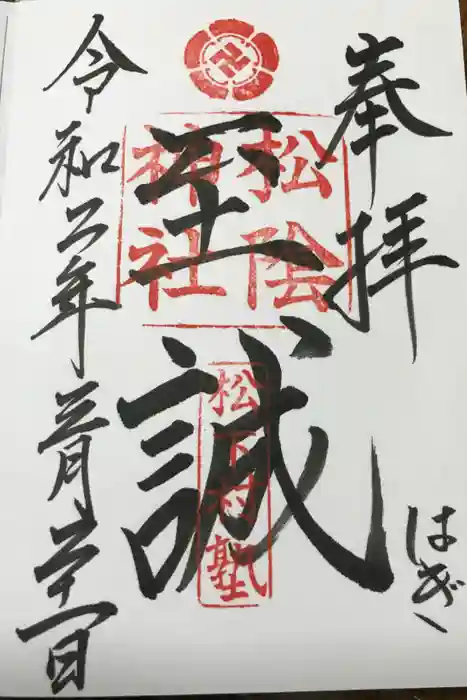 奉拝
はぎ
至誠
松陰神社
松下村塾
令和二年三月二十一日